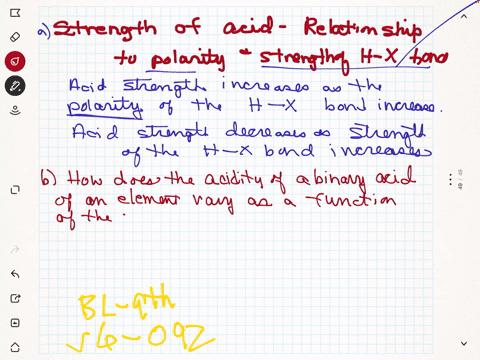 a) Strength of acid - Relationship
to polarity & strength of H-X bond
Acid strength increases as the
polarity of the H-X bond increase.
Acid strength decreases as strength
of the H-X bond increases
b) How does the acidity of a binary acid
of an element vary as a function
of the
BL-9th
56-092